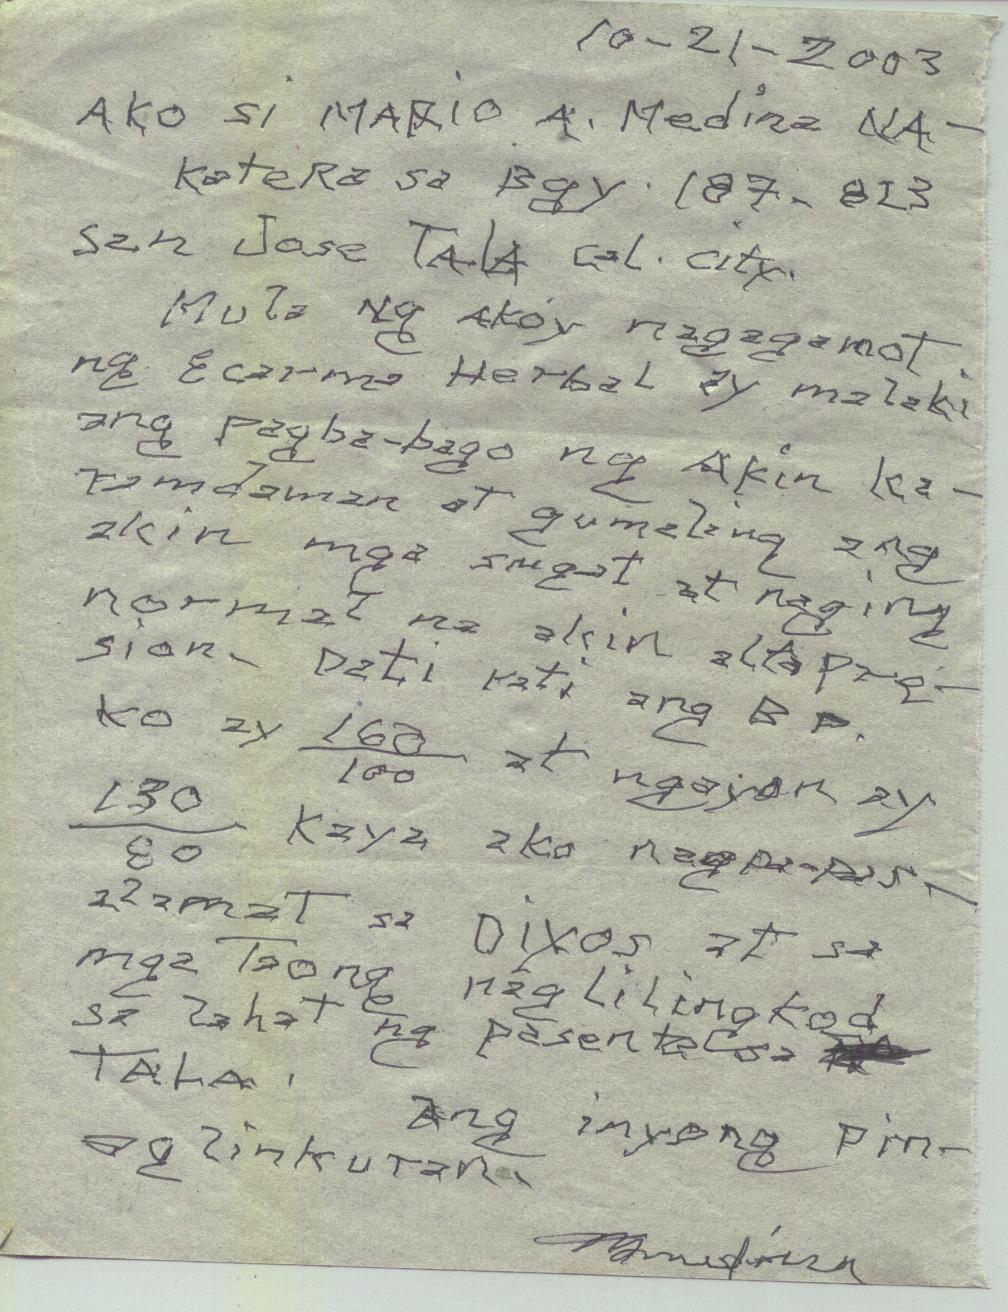 10-21-2003
AKO si MARIO A. Medina NA-
katera sa Bgy. 187- 823
San Jose TALA cal. city.
Mula Ng Akoy nagagamot
ng Ecarma Herbal ay malaki
ang pagba-bago ng Akin ka-
ramdaman at gumaling ang
akin mga sugat at naging
normal na akin altapre-
sion. Dati rati ang BP.
ko ay 160/100 at ngayon ay
130/80 kaya ako nagpa-pas-
alamat sa Diyos at sa
mga Taong naglilingkod
sa lahat ng pasente sa
TALA.
Ang inyong pin-
aglinkuran.